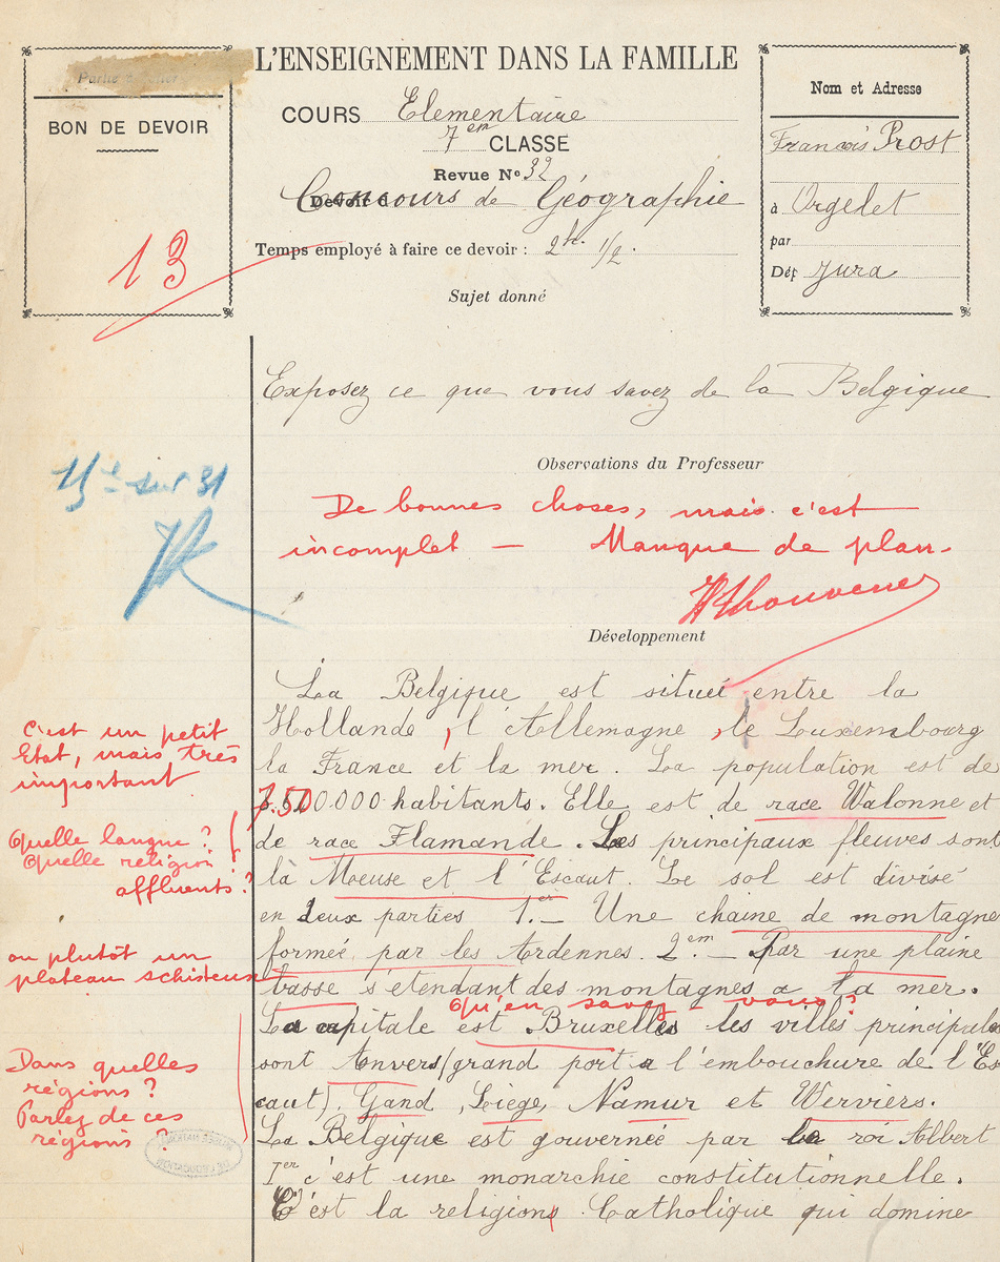 L'ENSEIGNEMENT DANS LA FAMILLE
BON DE DEVOIR
13
COURS Elementaire
7em CLASSE
Revue No 32
Concours de Géographie
Temps employé à faire ce devoir : 2h. 1/2.
Sujet donné
Nom et Adresse
François Prost
à Orgelet
par
Dép Jura
Exposez ce que vous savez de la Belgique
15e sur 31
Observations du Professeur
De bonnes choses, mais c'est
incomplet — Manque de plan.
Développement
La Belgique est situeé entre la
Hollande, l'Allemagne, le Luxembourg
la France et la mer. La population est de
7.500.000 habitants. Elle est de race Walonne et
de race Flamande. Les principaux fleuves sont
là Meuse et l'Escaut. Le sol est divisé
en deux parties 1.er — Une chaine de montagne
formeé par les Ardennes. 2.em — Par une plaine
basse s'étendant des montagnes a la mer.
Qu'en savez-vous?
La capitale est Bruxelles les villes principales
sont Anvers (grand port a l'embouchure de l'Es
caut). Gand, Liège, Namur et Werviers.
La Belgique est gouverneé par le roi Albert
Ier c'est une monarchie constitutionnelle.
C'est la religion Catholique qui domine
C'est un petit
Etat, mais très
important
Quelle langue?
Quelle religion
affluents?
ou plutôt un
plateau schisteux
Dans quelles
régions?
Parlez de ces
régions?